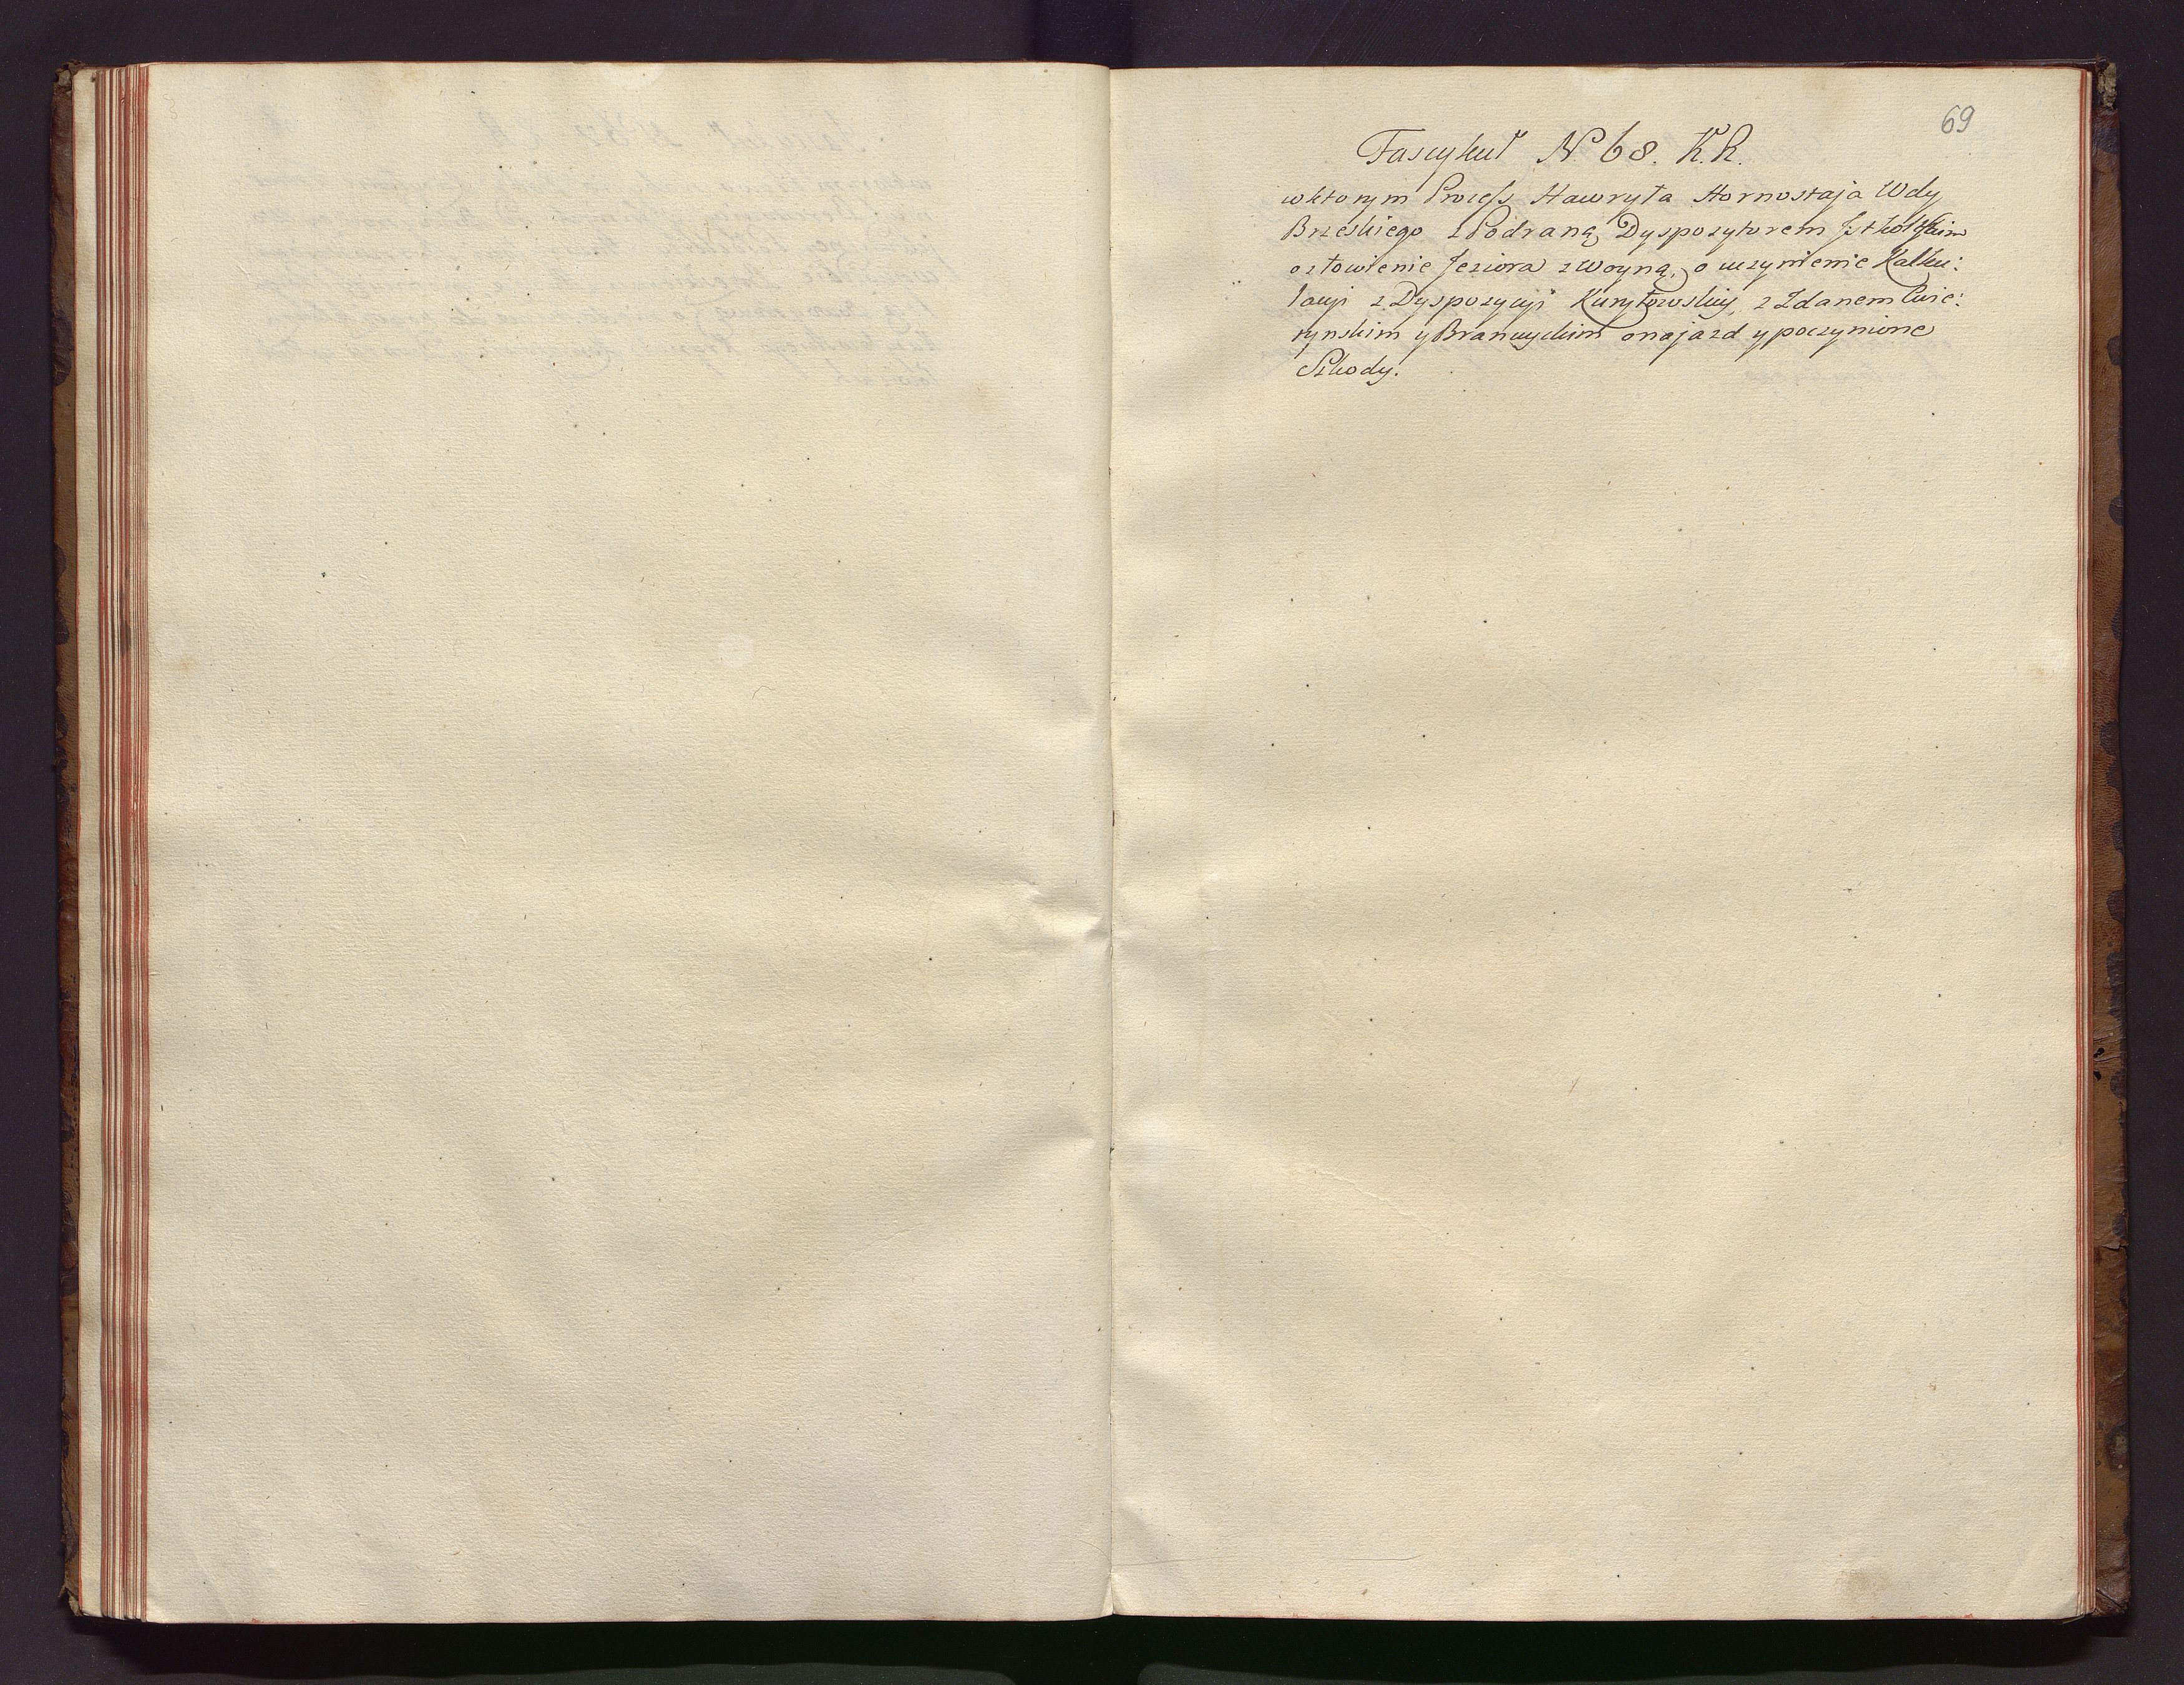 69
Fascykuł N. 68. K.R.
wktorym Process Hawryła Hornostaja Wdy
Brzeskiego z Podraną, Dyspozytorem
o złowienie Jeziora z Woyną, o uczynienie Kalku:
lacyi z Dyspozycyi Kuryłowskiy, z Zdanem Cwie:
rynskim y Branwyckim o najazd y poczynione
Szkody.